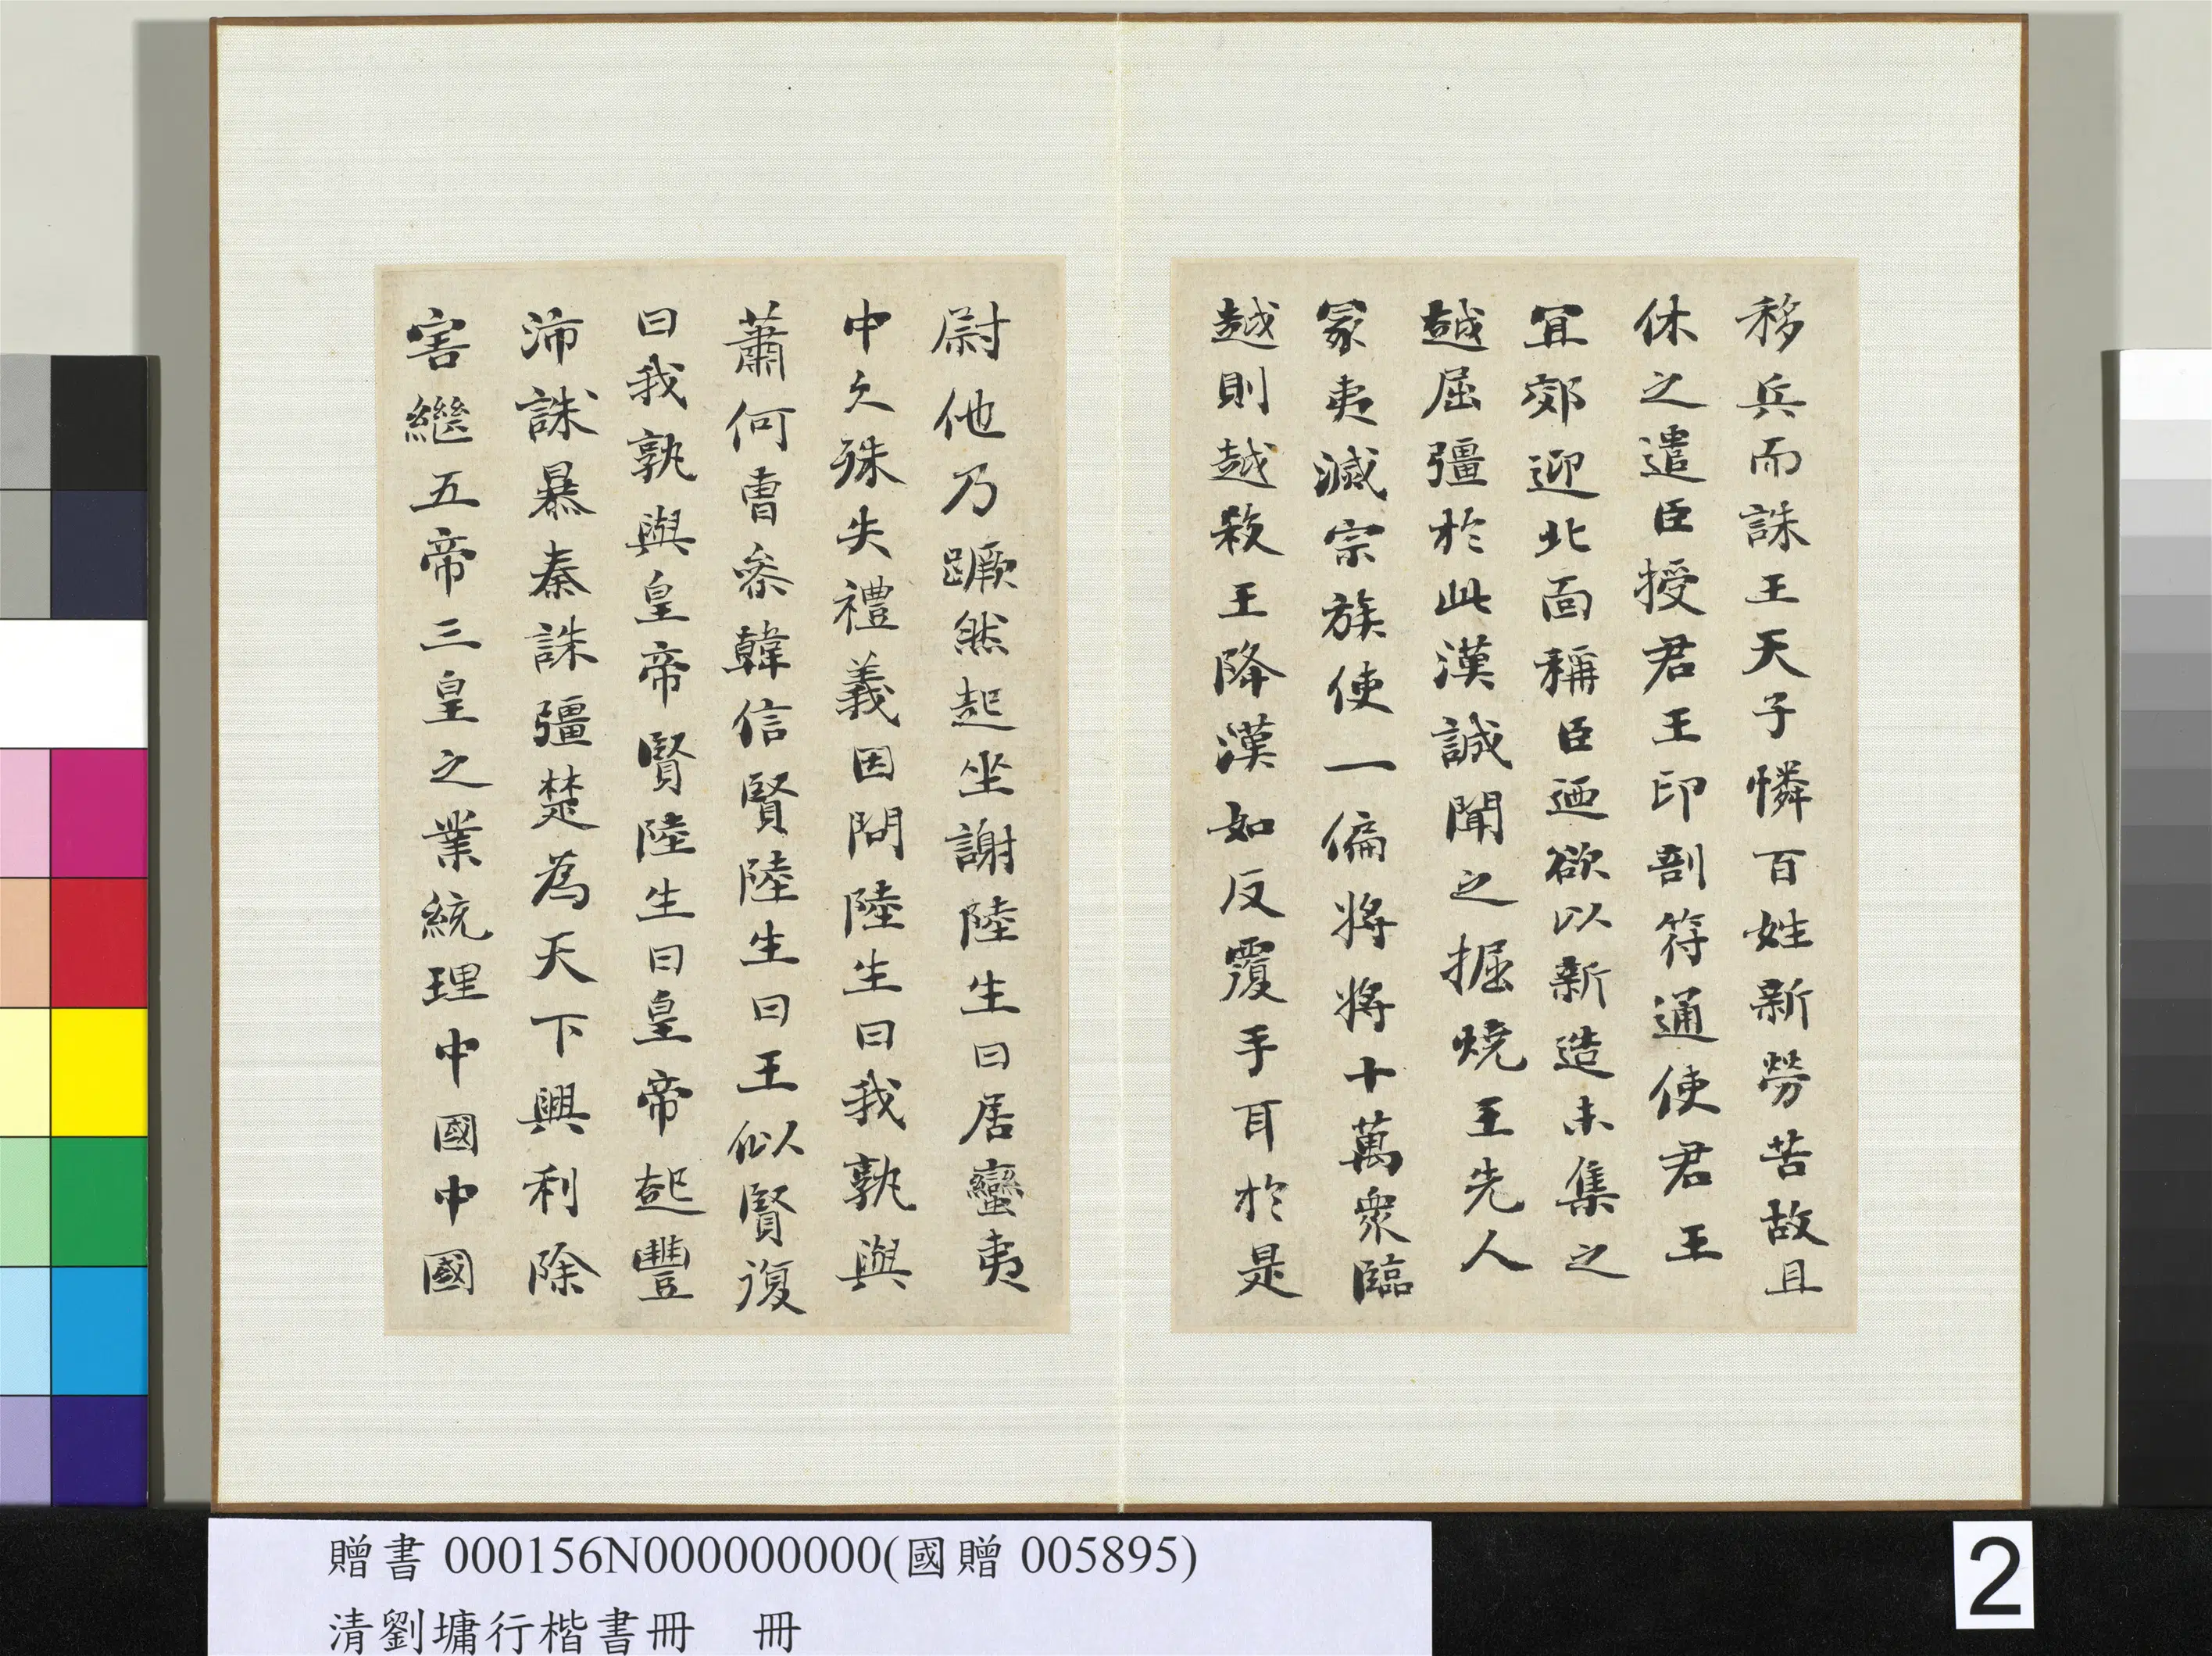 移兵而誅王天子憐百姓新勞苦故且
休之遣臣授君王印剖符通使君王
宜郊迎北面稱臣迺欲以新造未集之
越屈彊於此漢誠聞之掘燒王先人
冢夷滅宗族使一偏將將十萬衆臨
越則越殺王降漢如反覆手耳於是
尉他乃蹶然起坐謝陸生曰居蠻夷
中久殊失禮義因問陸生曰我孰與
蕭何曹參韓信賢陸生曰王似賢復
曰我孰與皇帝賢陸生曰皇帝起豐
沛誅暴秦誅彊楚為天下興利除
害繼五帝三皇之業統理中國中國
贈書 000156N000000000(國贈 005895)
清劉墉行楷書冊 冊
2